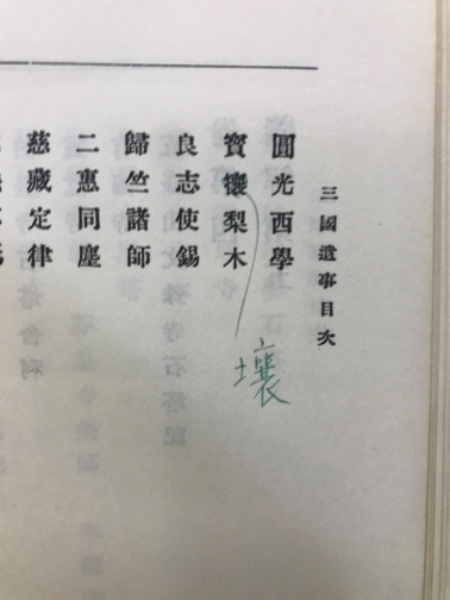 三國遺事目次
圓光西學
寳攘梨木
壤
良志使錫
歸竺諸師
二惠同塵
慈藏定律